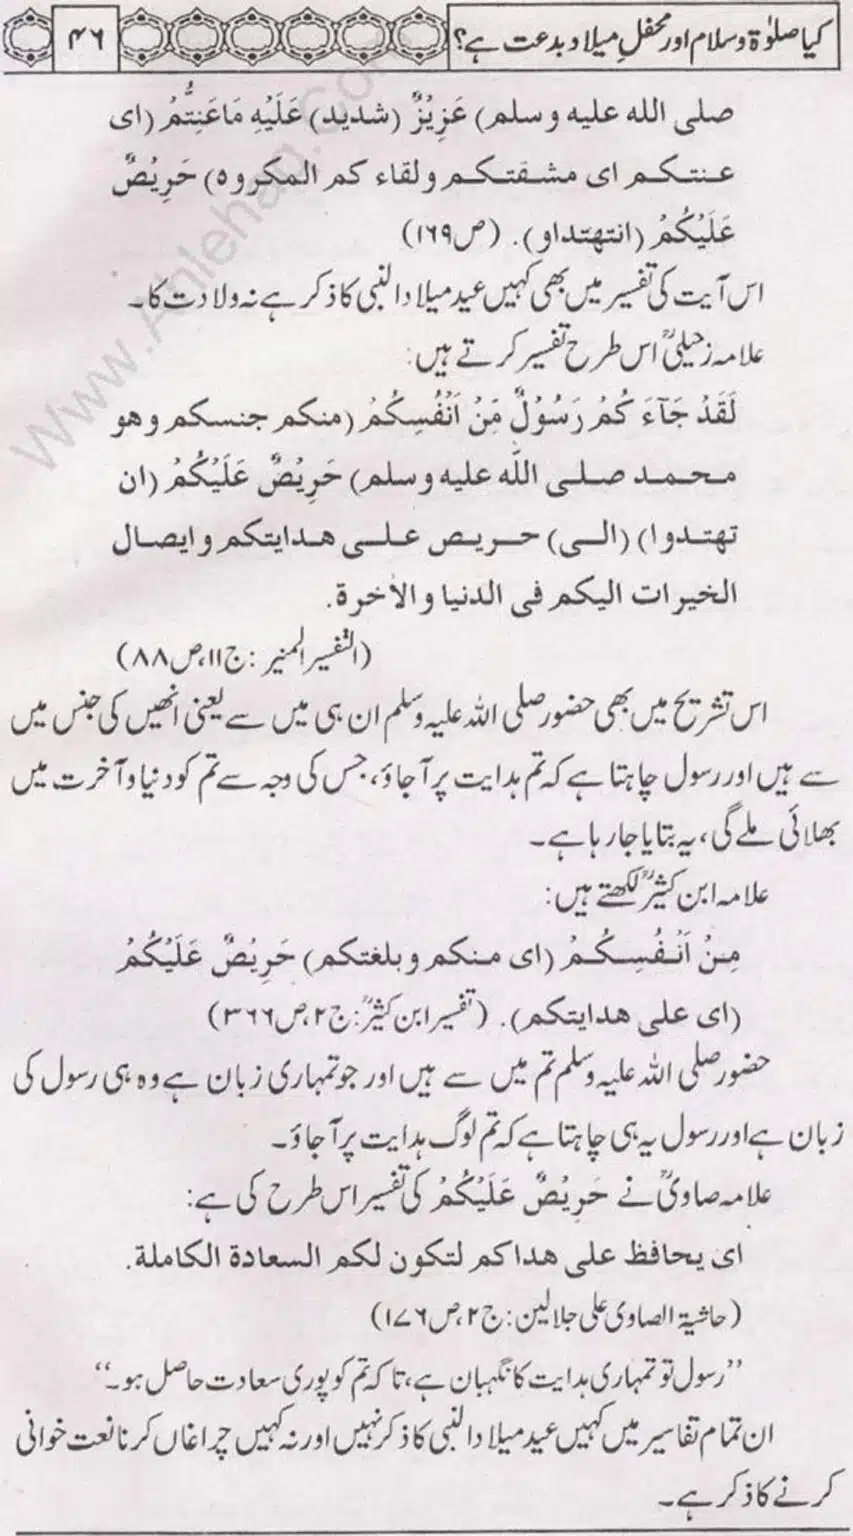 کیا صلوٰۃ وسلام اور محفلِ میلاد بدعت ہے؟
۴۶
صلى الله عليه وسلم) عَزِيْزٌ (شديد) عَلَيْهِ مَاعَنِتُّمْ (اى
عنتكم اى مشقتكم ولقاء كم المكروه) حَرِيْصٌ
عَلَيْكُمْ (انتهتداو). (ص۱۶۹)
اس آیت کی تفسیر میں بھی کہیں عید میلاد النبی کا ذکر ہے نہ ولادت کا۔
علامہ زحیلیؒ اس طرح تفسیر کرتے ہیں:
لَقَدْ جَآءَ كُمْ رَسُوْلٌ مِّنْ اَنْفُسِكُمْ (منكم جنسكم وهو
محمد صلى الله عليه وسلم) حَرِيْصٌ عَلَيْكُمْ (ان
تهتدوا) (الى) حريص على هدايتكم وايصال
الخيرات اليكم فى الدنيا والأخرة.
(التفسیر المنیر :ج۱۱،ص۸۸)
اس تشریح میں بھی حضور صلی اللہ علیہ وسلم ان ہی میں سے یعنی انھیں کی جنس میں
سے ہیں اور رسول چاہتا ہے کہ تم ہدایت پر آجاؤ، جس کی وجہ سے تم کو دنیا و آخرت میں
بھلائی ملے گی، یہ بتایا جارہا ہے۔
علامہ ابن کثیرؒ لکھتے ہیں:
مِنْ اَنْفُسِكُمْ (اى منكم وبلغتكم) حَرِيْصٌ عَلَيْكُمْ
(اى على هدايتكم). (تفسیر ابن کثیرؒ:ج۲،ص۳۶۶)
حضور صلی اللہ علیہ وسلم تم میں سے ہیں اور جو تمہاری زبان ہے وہ ہی رسول کی
زبان ہے اور رسول یہ ہی چاہتا ہے کہ تم لوگ ہدایت پر آجاؤ۔
علامہ صاویؒ نے حَرِيْصٌ عَلَيْكُمْ کی تفسیر اس طرح کی ہے:
اى يحافظ على هداكم لتكون لكم السعادة الكاملة.
(حاشیۃ الصاوی علی جلالین:ج۲،ص۱۷۶)
”رسول تو تمہاری ہدایت کا نگہبان ہے، تاکہ تم کو پوری سعادت حاصل ہو۔“
ان تمام تفاسیر میں کہیں عید میلاد النبی کا ذکر نہیں اور نہ کہیں چراغاں کرنا نعت خوانی
کرنے کا ذکر ہے۔
Www.Ahlehaq.Com